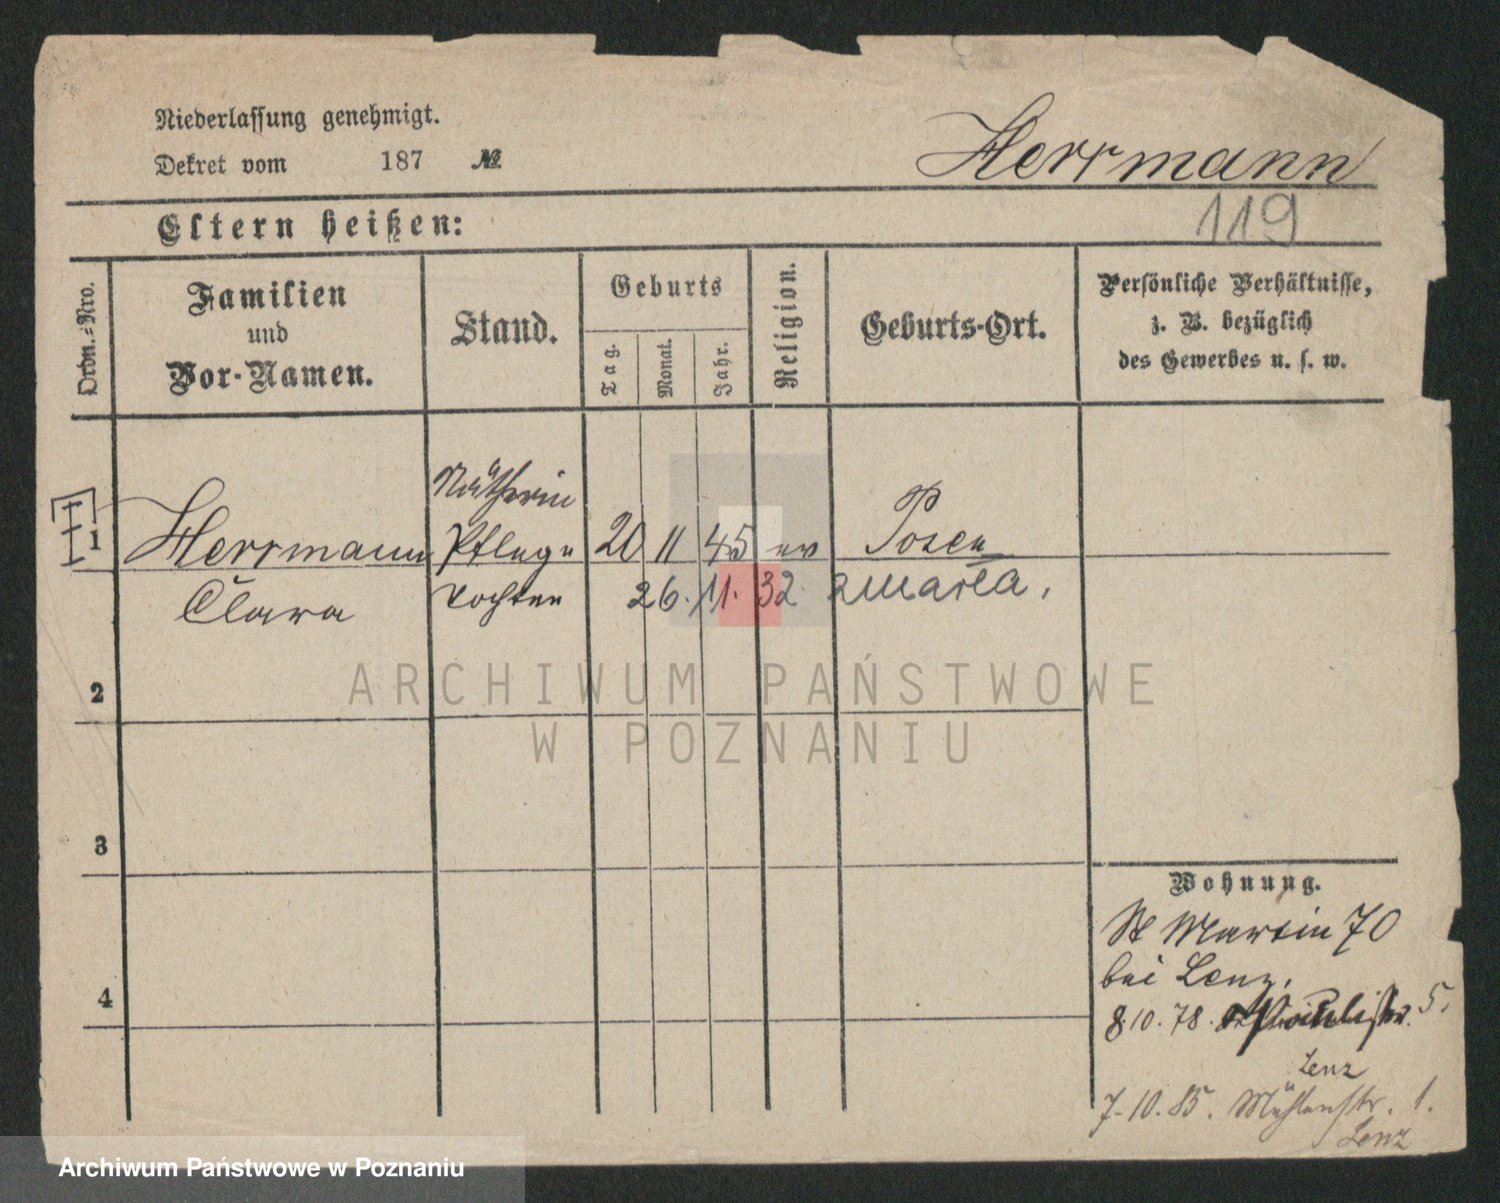 Niederlassung genehmigt.
Dekret vom 187 №
Herrmann
119
Eltern heißen:
Ordn.=Nro.
Familien
und
Vor-Namen.
Stand.
Geburts
Tag.
Monat.
Jahr.
Religion.
Geburts-Ort.
Persönliche Verhältnisse,
z. B. bezüglich
des Gewerbes u. s. w.
Nätherin
1 Herrmann Pflege 20 11 45 ev Posen
Clara tochter 26. 11. 32. zmarła.
2
ARCHIWUM PAŃSTWOWE
W POZNANIU
3
4
Wohnung.
St Martin 70
bei Lenz.
8.10.78. Paulistr. 5.
Lenz
7.10.85. Mühlenstr. 1.
Lenz
Archiwum Państwowe w Poznaniu